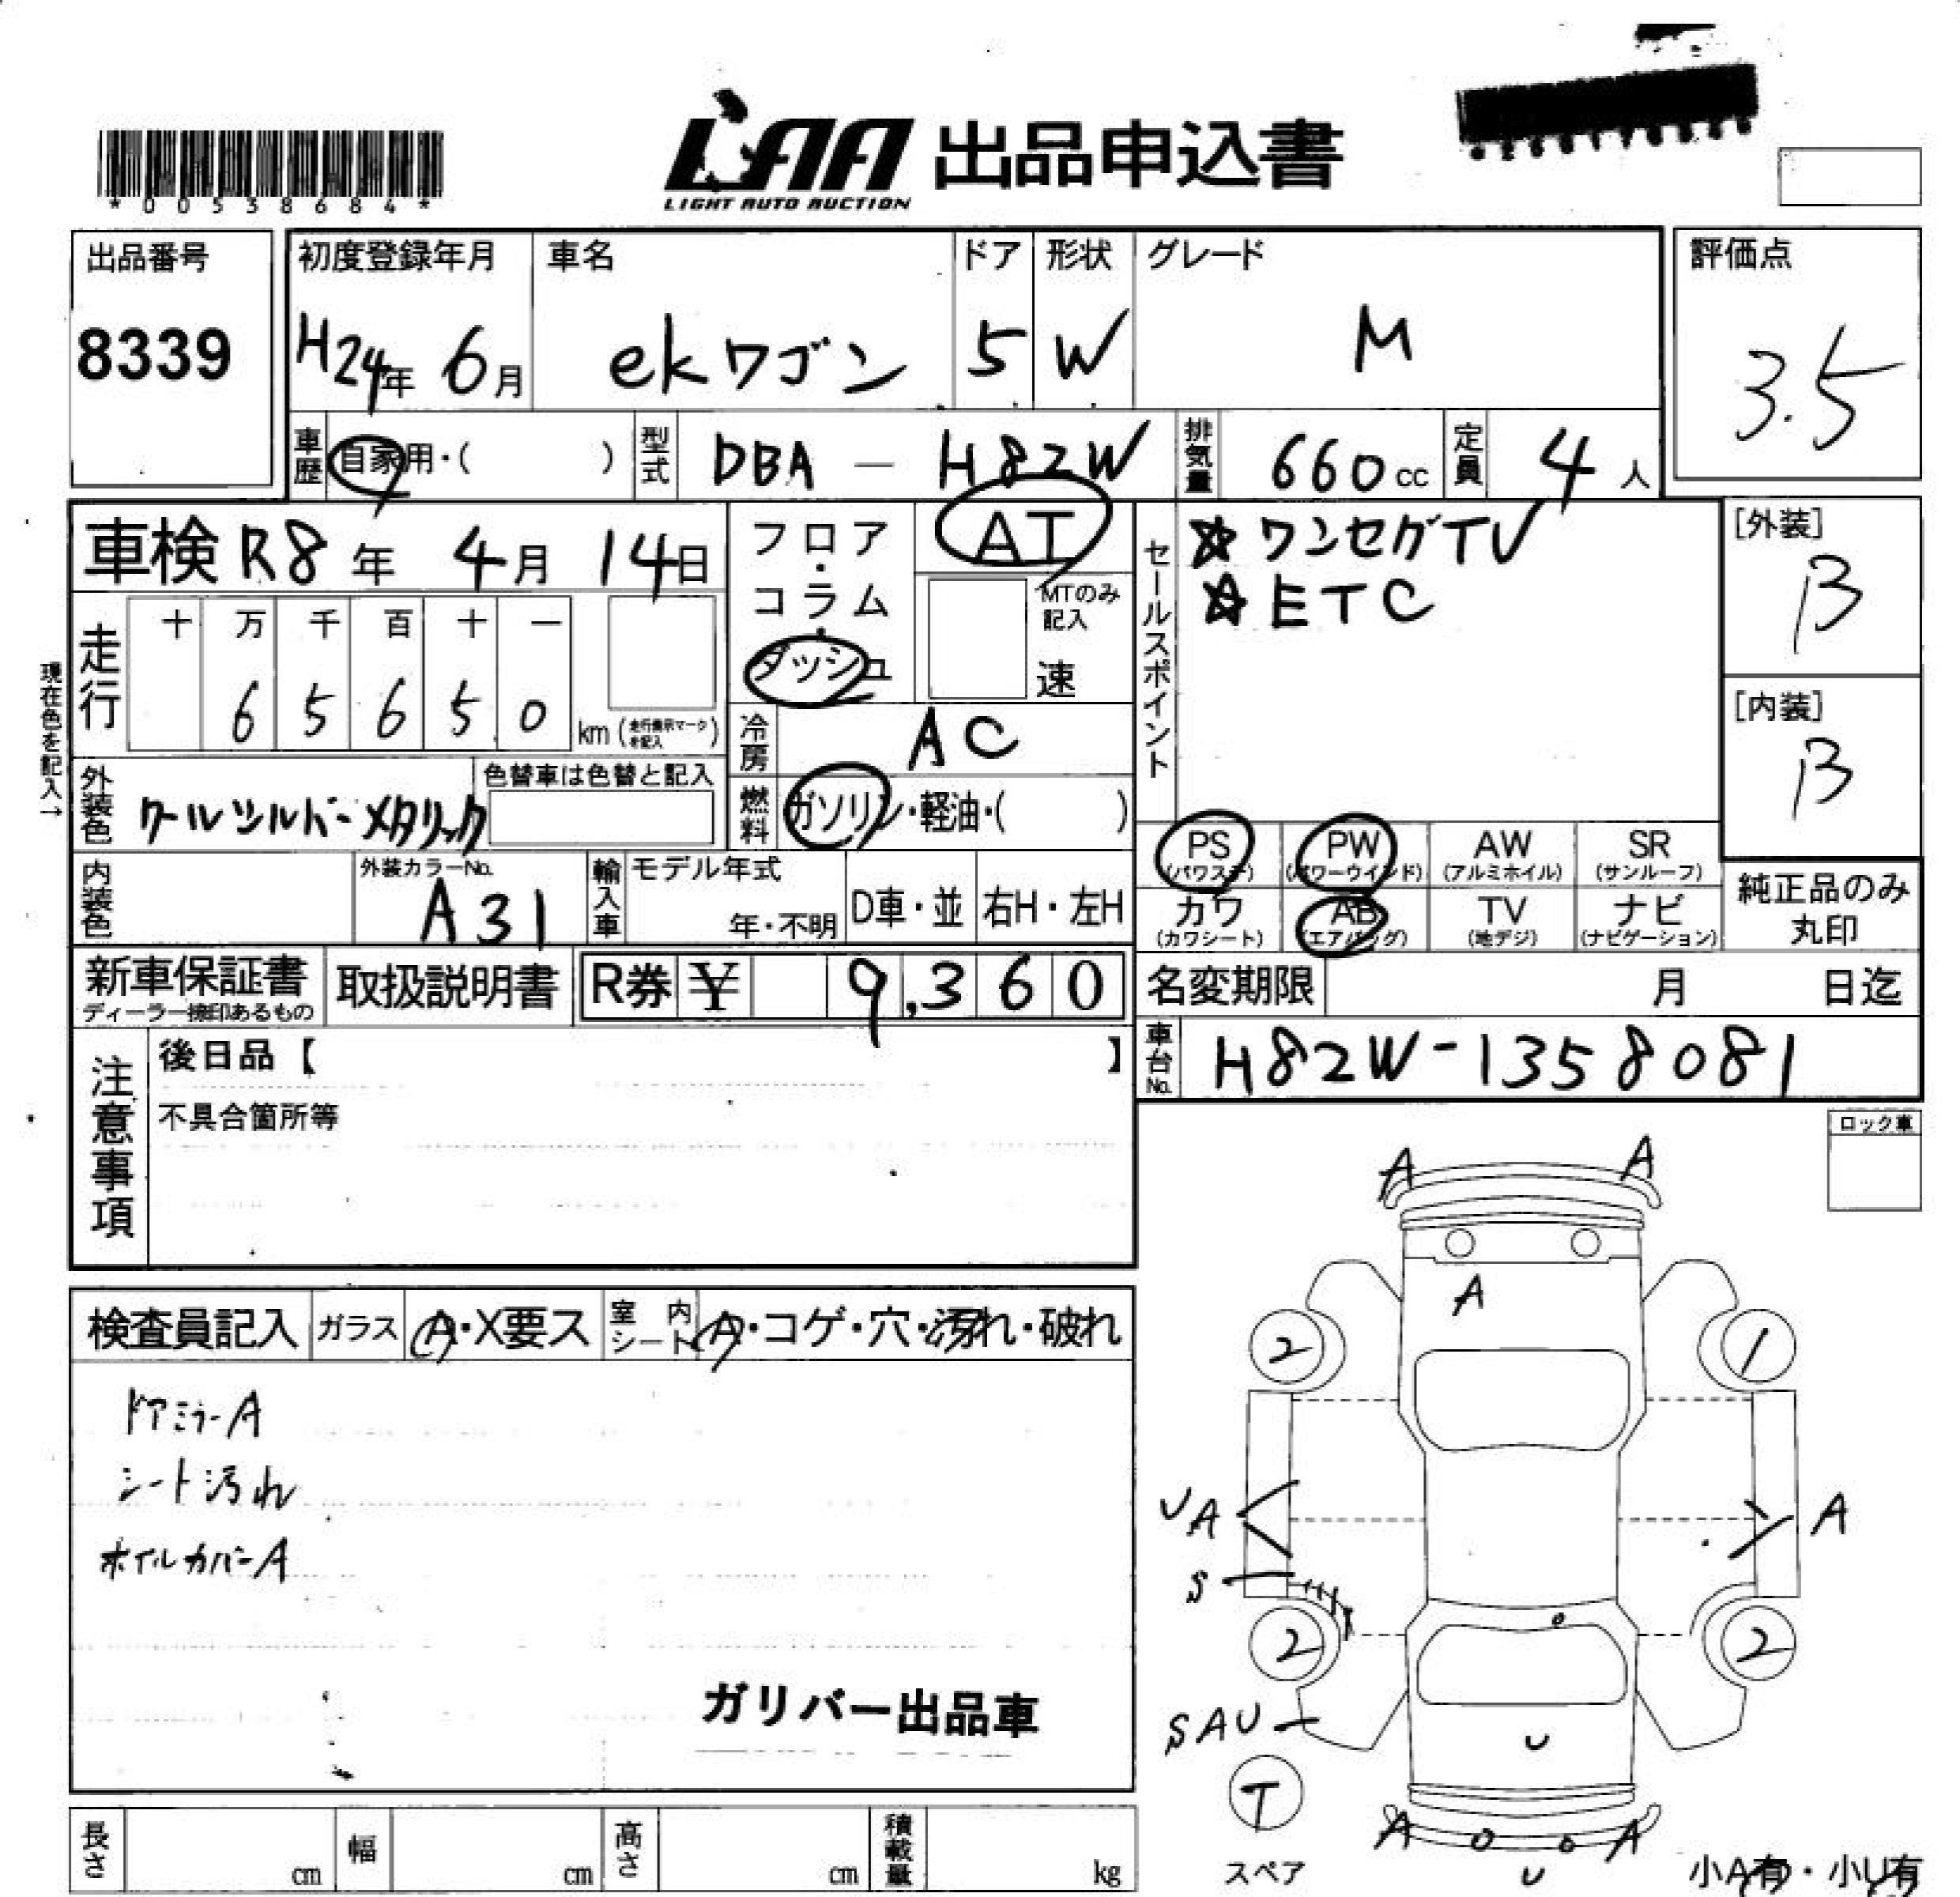 *00538684*
LAA 出品申込書
LIGHT AUTO AUCTION
出品番号 初度登録年月 車名 ドア 形状 グレード 評価点
8339 H24年 6月 ekワゴン 5 W M 3.5
車歴 自家用・( ) 型式 DBA - H82W 排気量 660 cc 定員 4 人
車検 R8年 4月 14日 フロア・コラム・ダッシュ AT MTのみ記入 速
セールスポイント ☆ワンセグTV
☆ETC
[外装] B
[内装] B
現在色を記入→
走行 十 万 千 百 十 一
6 5 6 5 0 km (走行表示マークを記入)
冷房 AC
外装色 クールシルバーメタリック 色替車は色替と記入
燃料 ガソリン・軽油・( )
PS (パワステ) PW (パワーウインド) AW (アルミホイル) SR (サンルーフ)
カワ (カワシート) AB (エアバッグ) TV (地デジ) ナビ (ナビゲーション)
純正品のみ丸印
内装色 外装カラーNo. A31 輸入車 モデル年式 年・不明 D車・並 右H・左H
新車保証書 取扱説明書 R券 ¥ 9,360
名変期限 月 日迄
車台No. H82W-1358081
注意事項 後日品【 】
不具合箇所等
ロック車
検査員記入 ガラス A・X要ス 室内シート A・コゲ・穴・汚れ・破れ
ドアミラーA
シート汚れ
ホイルカバーA
ガリバー出品車
A A
A
2 1
UA A
S
2 2
SAU U
T
スペア
A A
U
小A有・小U有
長さ cm 幅 cm 高さ cm 積載量 kg